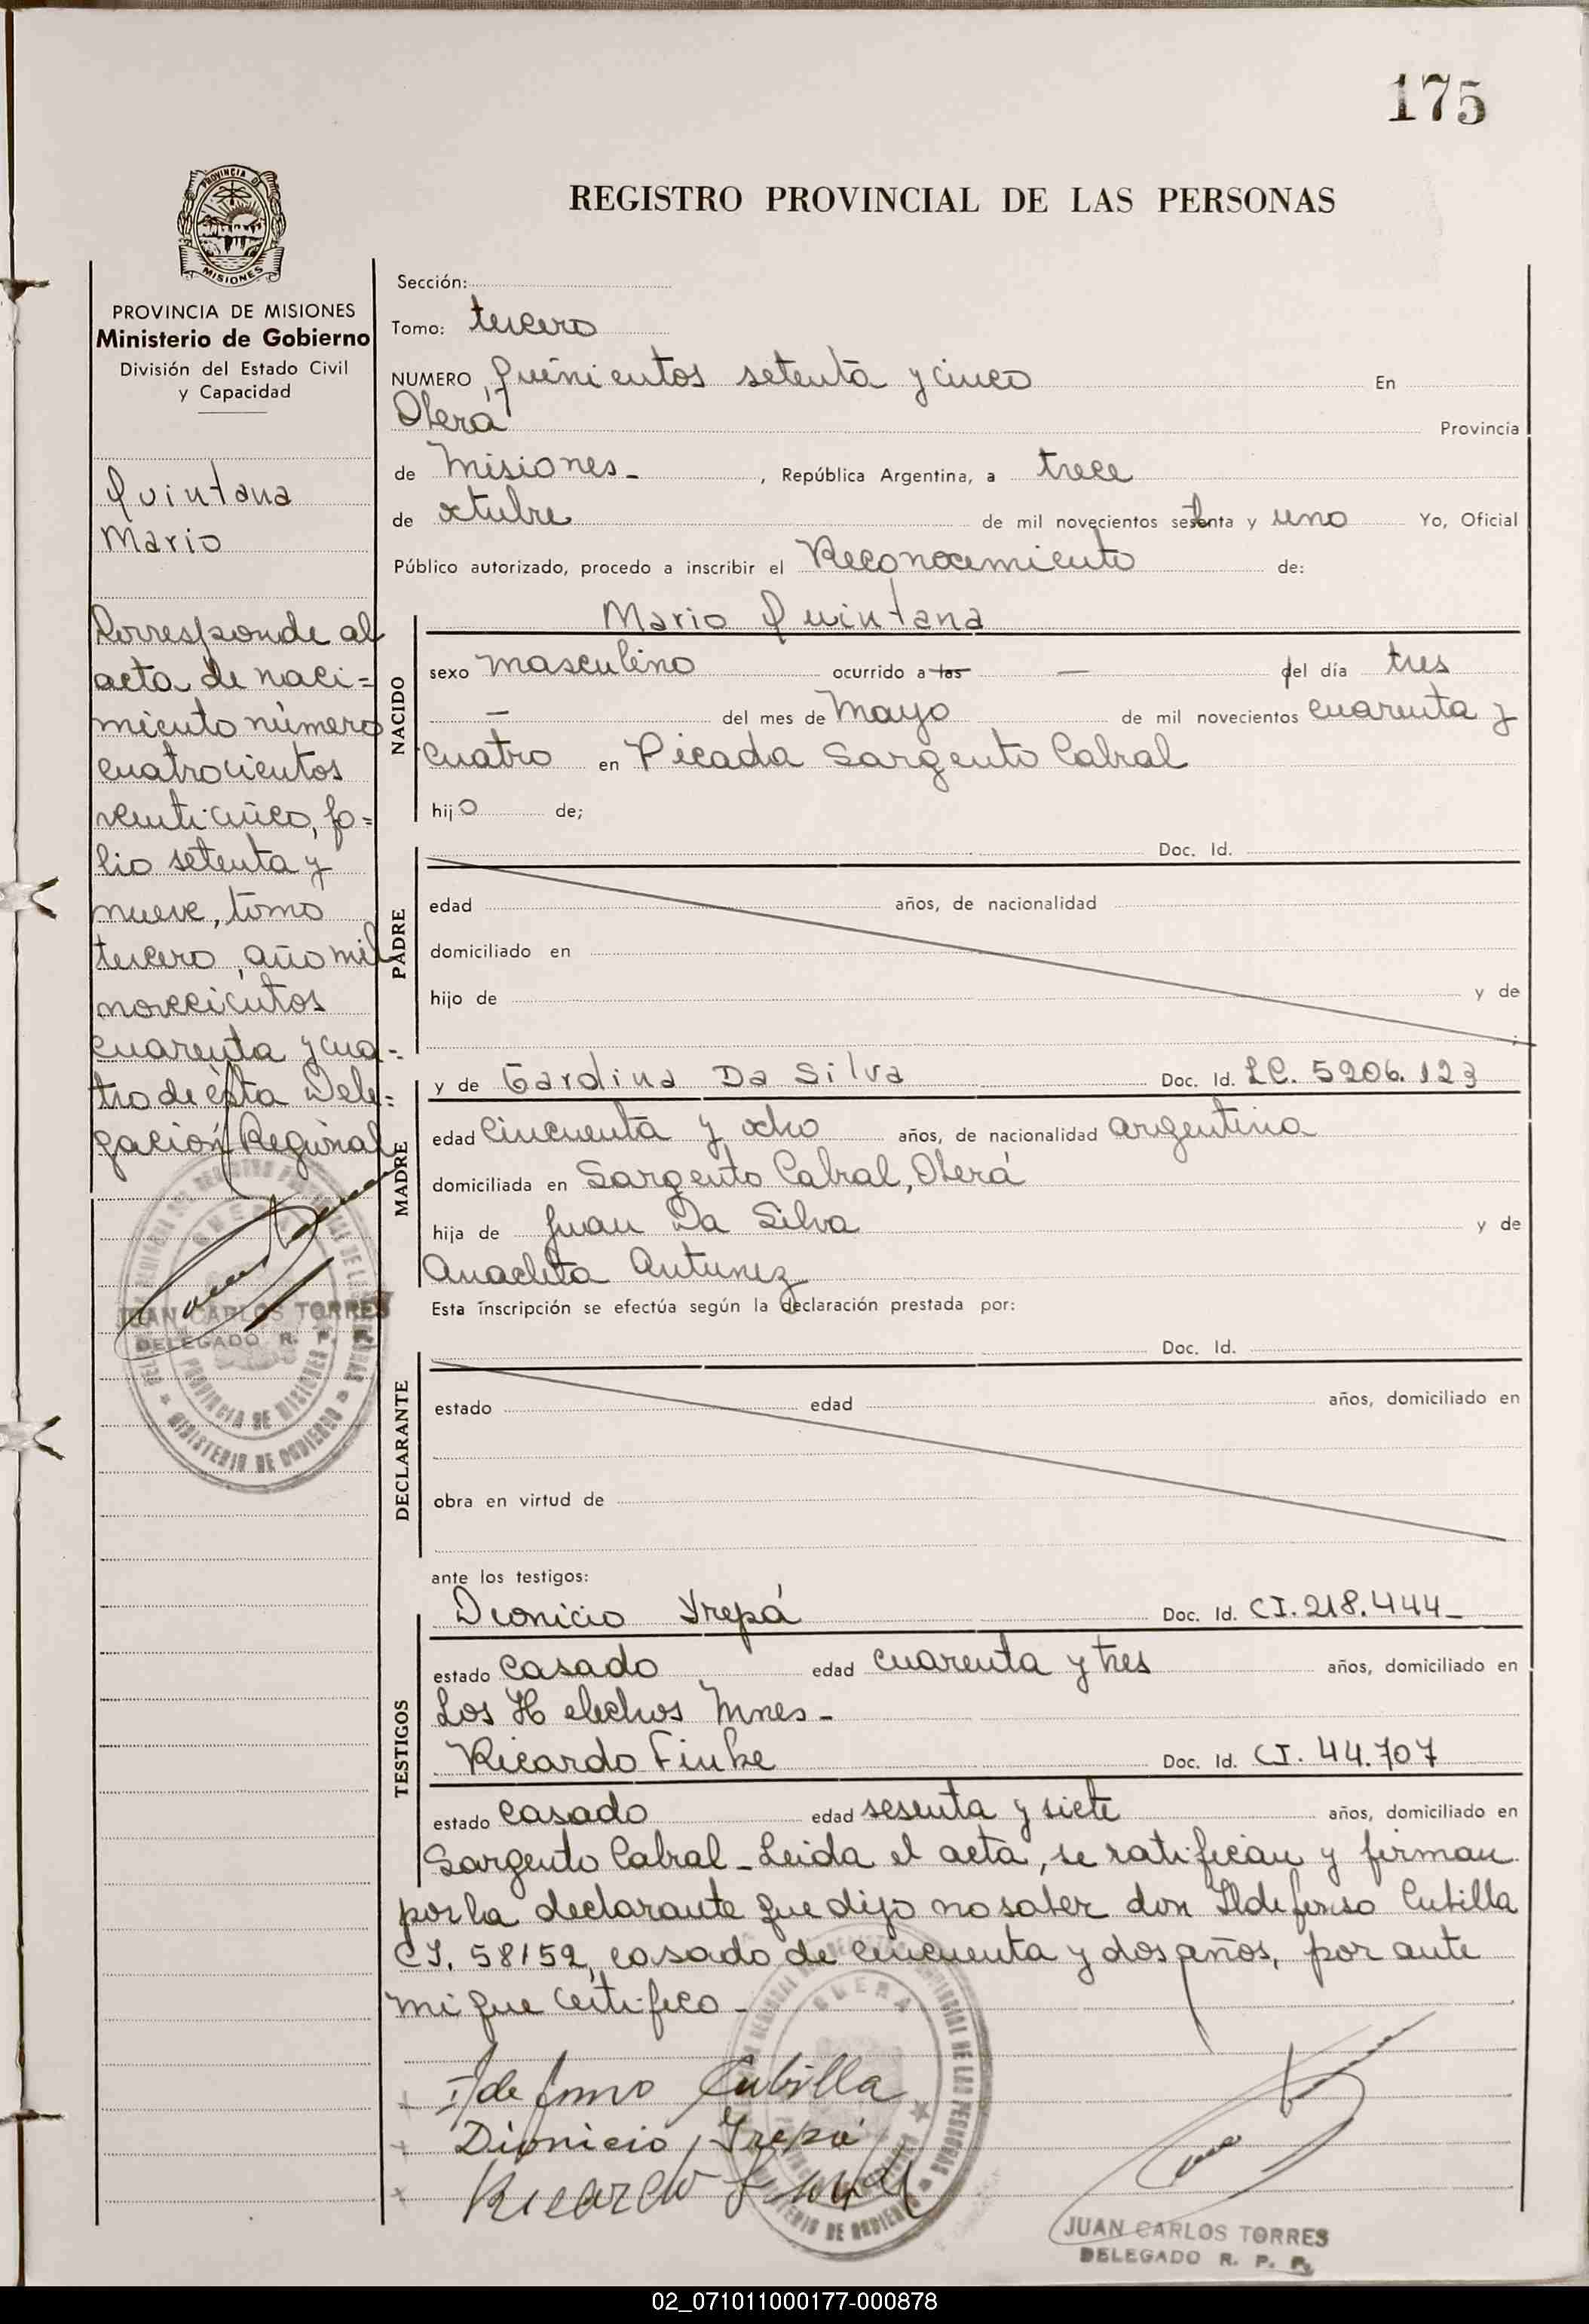 175
PROVINCIA DE
MISIONES
REGISTRO PROVINCIAL DE LAS PERSONAS
PROVINCIA DE MISIONES
Ministerio de Gobierno
División del Estado Civil
y Capacidad
Quintana
Mario
Corresponde al
acta de naci=
miento número
cuatrocientos
veinticinco, fo=
lio setenta y
nueve, tomo
tercero, año mil
novecientos
cuarenta y cua-
tro de ésta Dele=
gación Regional
JUAN CARLOS TORRES
DELEGADO R. P. P.
Sección:
Tomo: tercero
NUMERO, quinientos setenta y cinco En
Oberá Provincia
de Misiones - , República Argentina, a trece
de octubre de mil novecientos setenta y uno Yo, Oficial
Público autorizado, procedo a inscribir el Reconocimiento de:
Mario Quintana
NACIDO
sexo masculino ocurrido a las — del día tres
— del mes de Mayo de mil novecientos cuarenta y
cuatro en Picada Sargento Cabral
hijo de;
PADRE
Doc. Id.
edad años, de nacionalidad
domiciliado en
hijo de y de
;
MADRE
y de Gardina Da Silva Doc. Id. LC. 5206.123
edad cincuenta y ocho años, de nacionalidad argentina
domiciliada en Sargento Cabral, Oberá
hija de Juan Da Silva y de
Anacleta Antunez
Esta inscripción se efectúa según la declaración prestada por:
DECLARANTE
Doc. Id.
estado edad años, domiciliado en
obra en virtud de
ante los testigos:
TESTIGOS
Dionicio Yrepá Doc. Id. CI. 218.444-
estado casado edad cuarenta y tres años, domiciliado en
Los Helechos Mnes -
Ricardo Finke Doc. Id. CI. 44.707
estado casado edad sesenta y siete años, domiciliado en
Sargento Cabral - Leida el acta, se ratifican y firman
por la declarante que dijo no saber don Ildefonso Cubilla
CI. 58152, casado de cincuenta y dos años, por ante
mi que certifico -
Ildefonso Cubilla
Dionicio Yrepá
Ricardo
JUAN CARLOS TORRES
DELEGADO R. P. P.
02_071011000177-000878